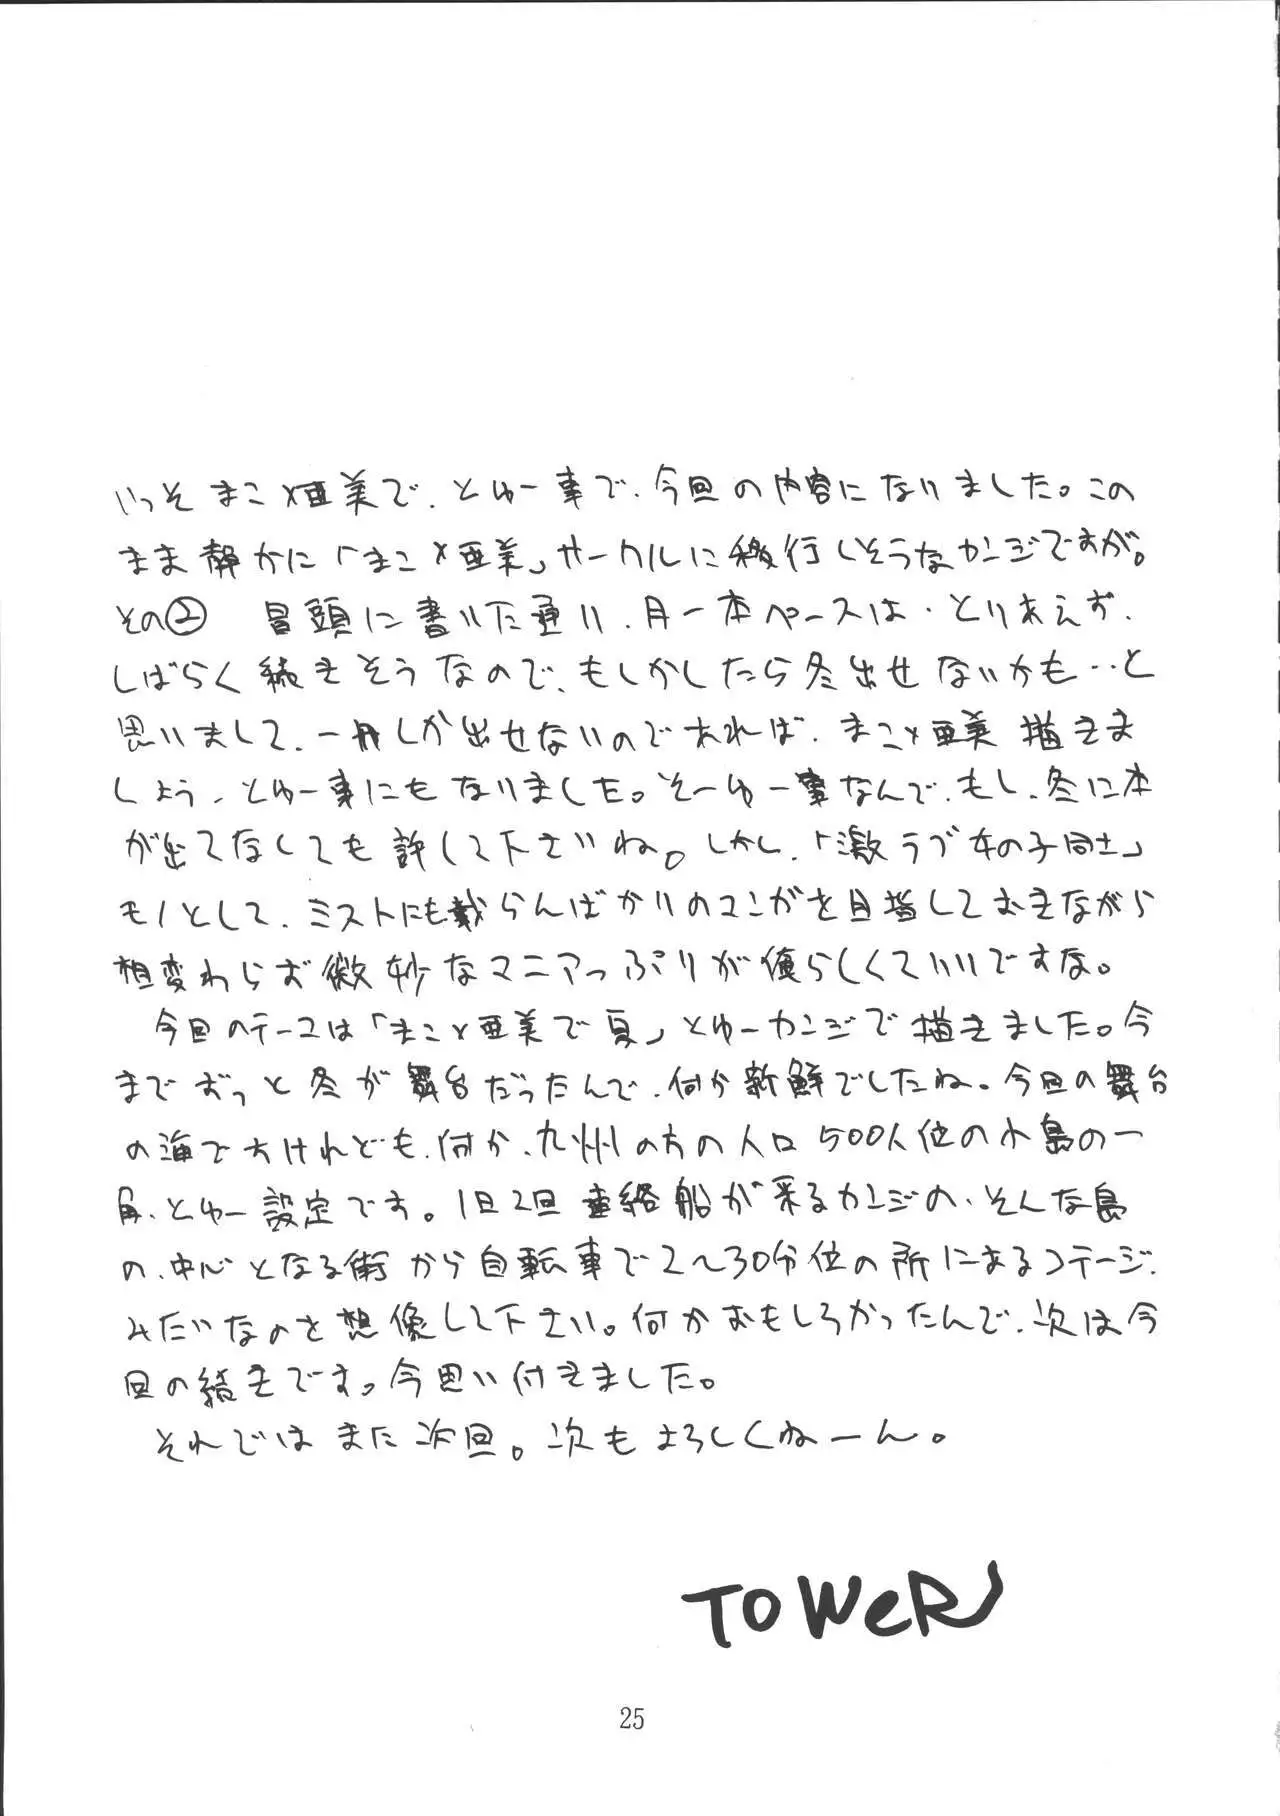 いっそ まこ×亜美で、とゆー事で、今回の内容になりました。この
まま静かに「まこ×亜美」サークルに移行しそうなカンジですが。
その② 冒頭に書いた通り、月一本ペースは、とりあえず、
しばらく続きそうなので、もしかしたら冬出せないかも‥と
思いまして、一冊しか出せないのであれば、まこ×亜美 描きま
しょう、とゆー事にもなりました。そーゆー事なんで、もし、冬に本
が出てなくしても許して下さいね。しかし、「激ラブ女の子同士」
モノとして、ミストにも載らんばかりのマンガを目指しておきながら
相変わらず微妙なマニアっぷりが俺らしくていいですな。
今回のテーマは「まこ×亜美で夏」とゆーカンジで描きました。今
までずっと冬が舞台だったんで、何か新鮮でしたね。今回の舞台
の海ですけれども、何か、九州の方の人口500人位の小島の一
角、とゆー設定です。1日2回連絡船が来るカンジの、そんな島
の、中心となる街から自転車で2〜30分位の所にあるコテージ、
みたいなのを想像して下さい。何かおもしろかったんで、次は今
回の続きです。今思い付きました。
それではまた次回。次もよろしくねーん。
TOWeR
25